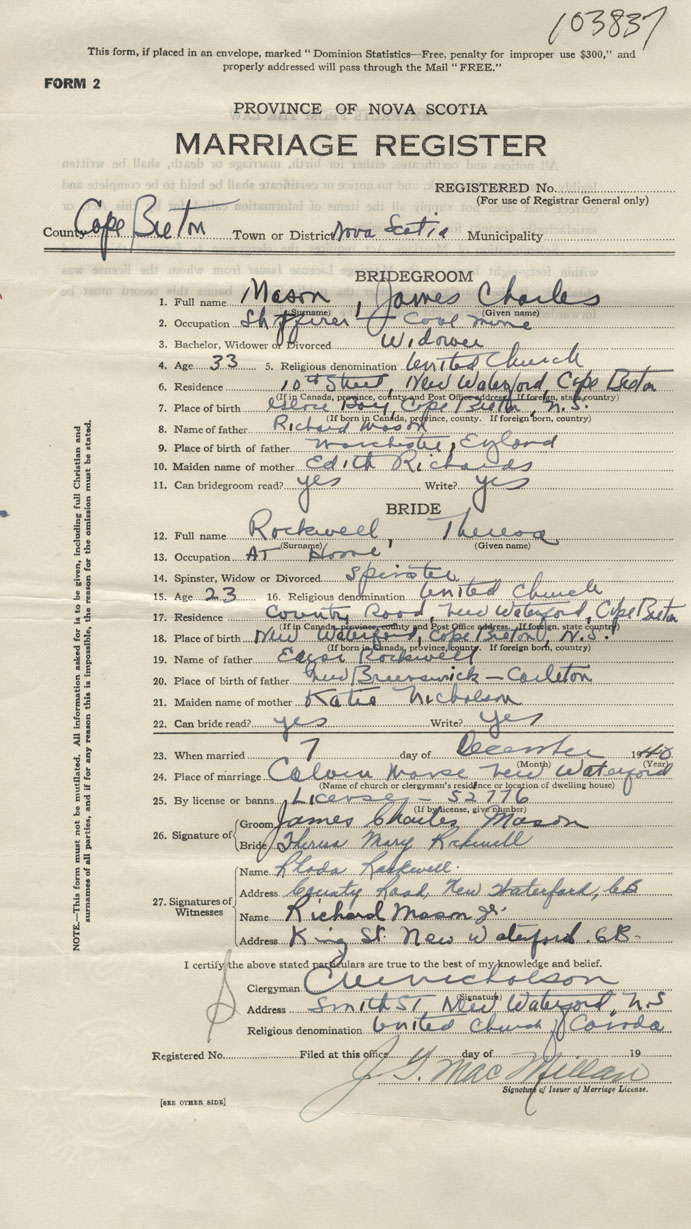 103837
This form, if placed in an envelope, marked "Dominion Statistics—Free, penalty for improper use $300," and
properly addressed will pass through the Mail "FREE."
FORM 2
PROVINCE OF NOVA SCOTIA
MARRIAGE REGISTER
REGISTERED No.
(For use of Registrar General only)
County Cape Breton Town or District Nova Scotia Municipality
BRIDEGROOM
1. Full name Mason, James Charles
(Surname) (Given name)
2. Occupation Coal mine
3. Bachelor, Widower or Divorced Widower
4. Age 33 5. Religious denomination United Church
6. Residence 10th Street, New Waterford, Cape Breton
(If in Canada, province, county and Post Office address. If foreign, state country)
7. Place of birth Glace Bay, Cape Breton, N.S.
(If born in Canada, province, county. If foreign born, country)
8. Name of father Richard Mason
9. Place of birth of father England
10. Maiden name of mother Edith Richards
11. Can bridegroom read? yes Write? yes
BRIDE
12. Full name Rockwell, Theresa
(Surname) (Given name)
13. Occupation At Home
14. Spinster, Widow or Divorced Spinster
15. Age 23 16. Religious denomination United Church
17. Residence County Road, New Waterford, Cape Breton
(If in Canada, province, county and Post Office address. If foreign, state country)
18. Place of birth New Waterford, Cape Breton, N.S.
(If born in Canada, province, county. If foreign born, country)
19. Name of father Rockwell
20. Place of birth of father New Brunswick – Carleton
21. Maiden name of mother Katie Nicholson
22. Can bride read? yes Write? yes
23. When married 7 day of December 1940
(Month) (Year)
24. Place of marriage Calvin Manse New Waterford
(Name of church or clergyman's residence or location of dwelling house)
25. By license or banns License – 52776
(If by license, give number)
26. Signature of
Groom James Charles Mason
Bride Theresa Mary Rockwell
27. Signatures of Witnesses
Name Rhoda Rockwell
Address County Road, New Waterford, CB
Name Richard Mason Jr.
Address King St. New Waterford. CB.
I certify the above stated particulars are true to the best of my knowledge and belief.
Clergyman Nicholson
(Signature)
Address Smith St, New Waterford, N.S
Religious denomination United Church of Canada
Registered No. Filed at this office day of 19
J. G. MacMillan
Signature of Issuer of Marriage License.
[SEE OTHER SIDE]
NOTE.—This form must not be mutilated. All information asked for is to be given, including full Christian and
surnames of all parties, and if for any reason this is impossible, the reason for the omission must be stated.